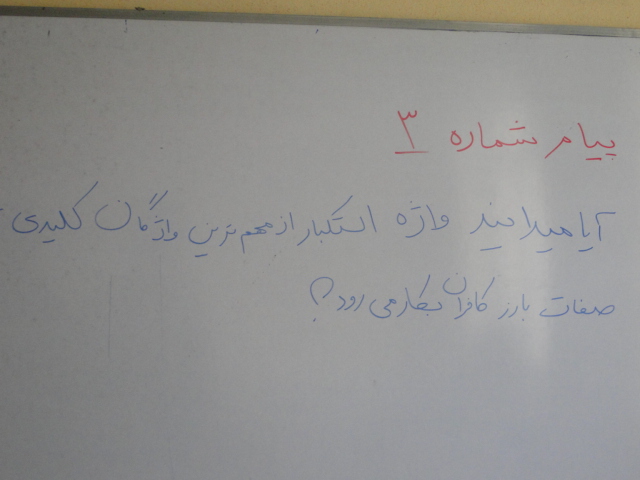 پیام شماره ۳
آیا میدانید واژه استکبار از مهم ترین واژگان کلیدی
صفات بارز کافران بکار می رود؟